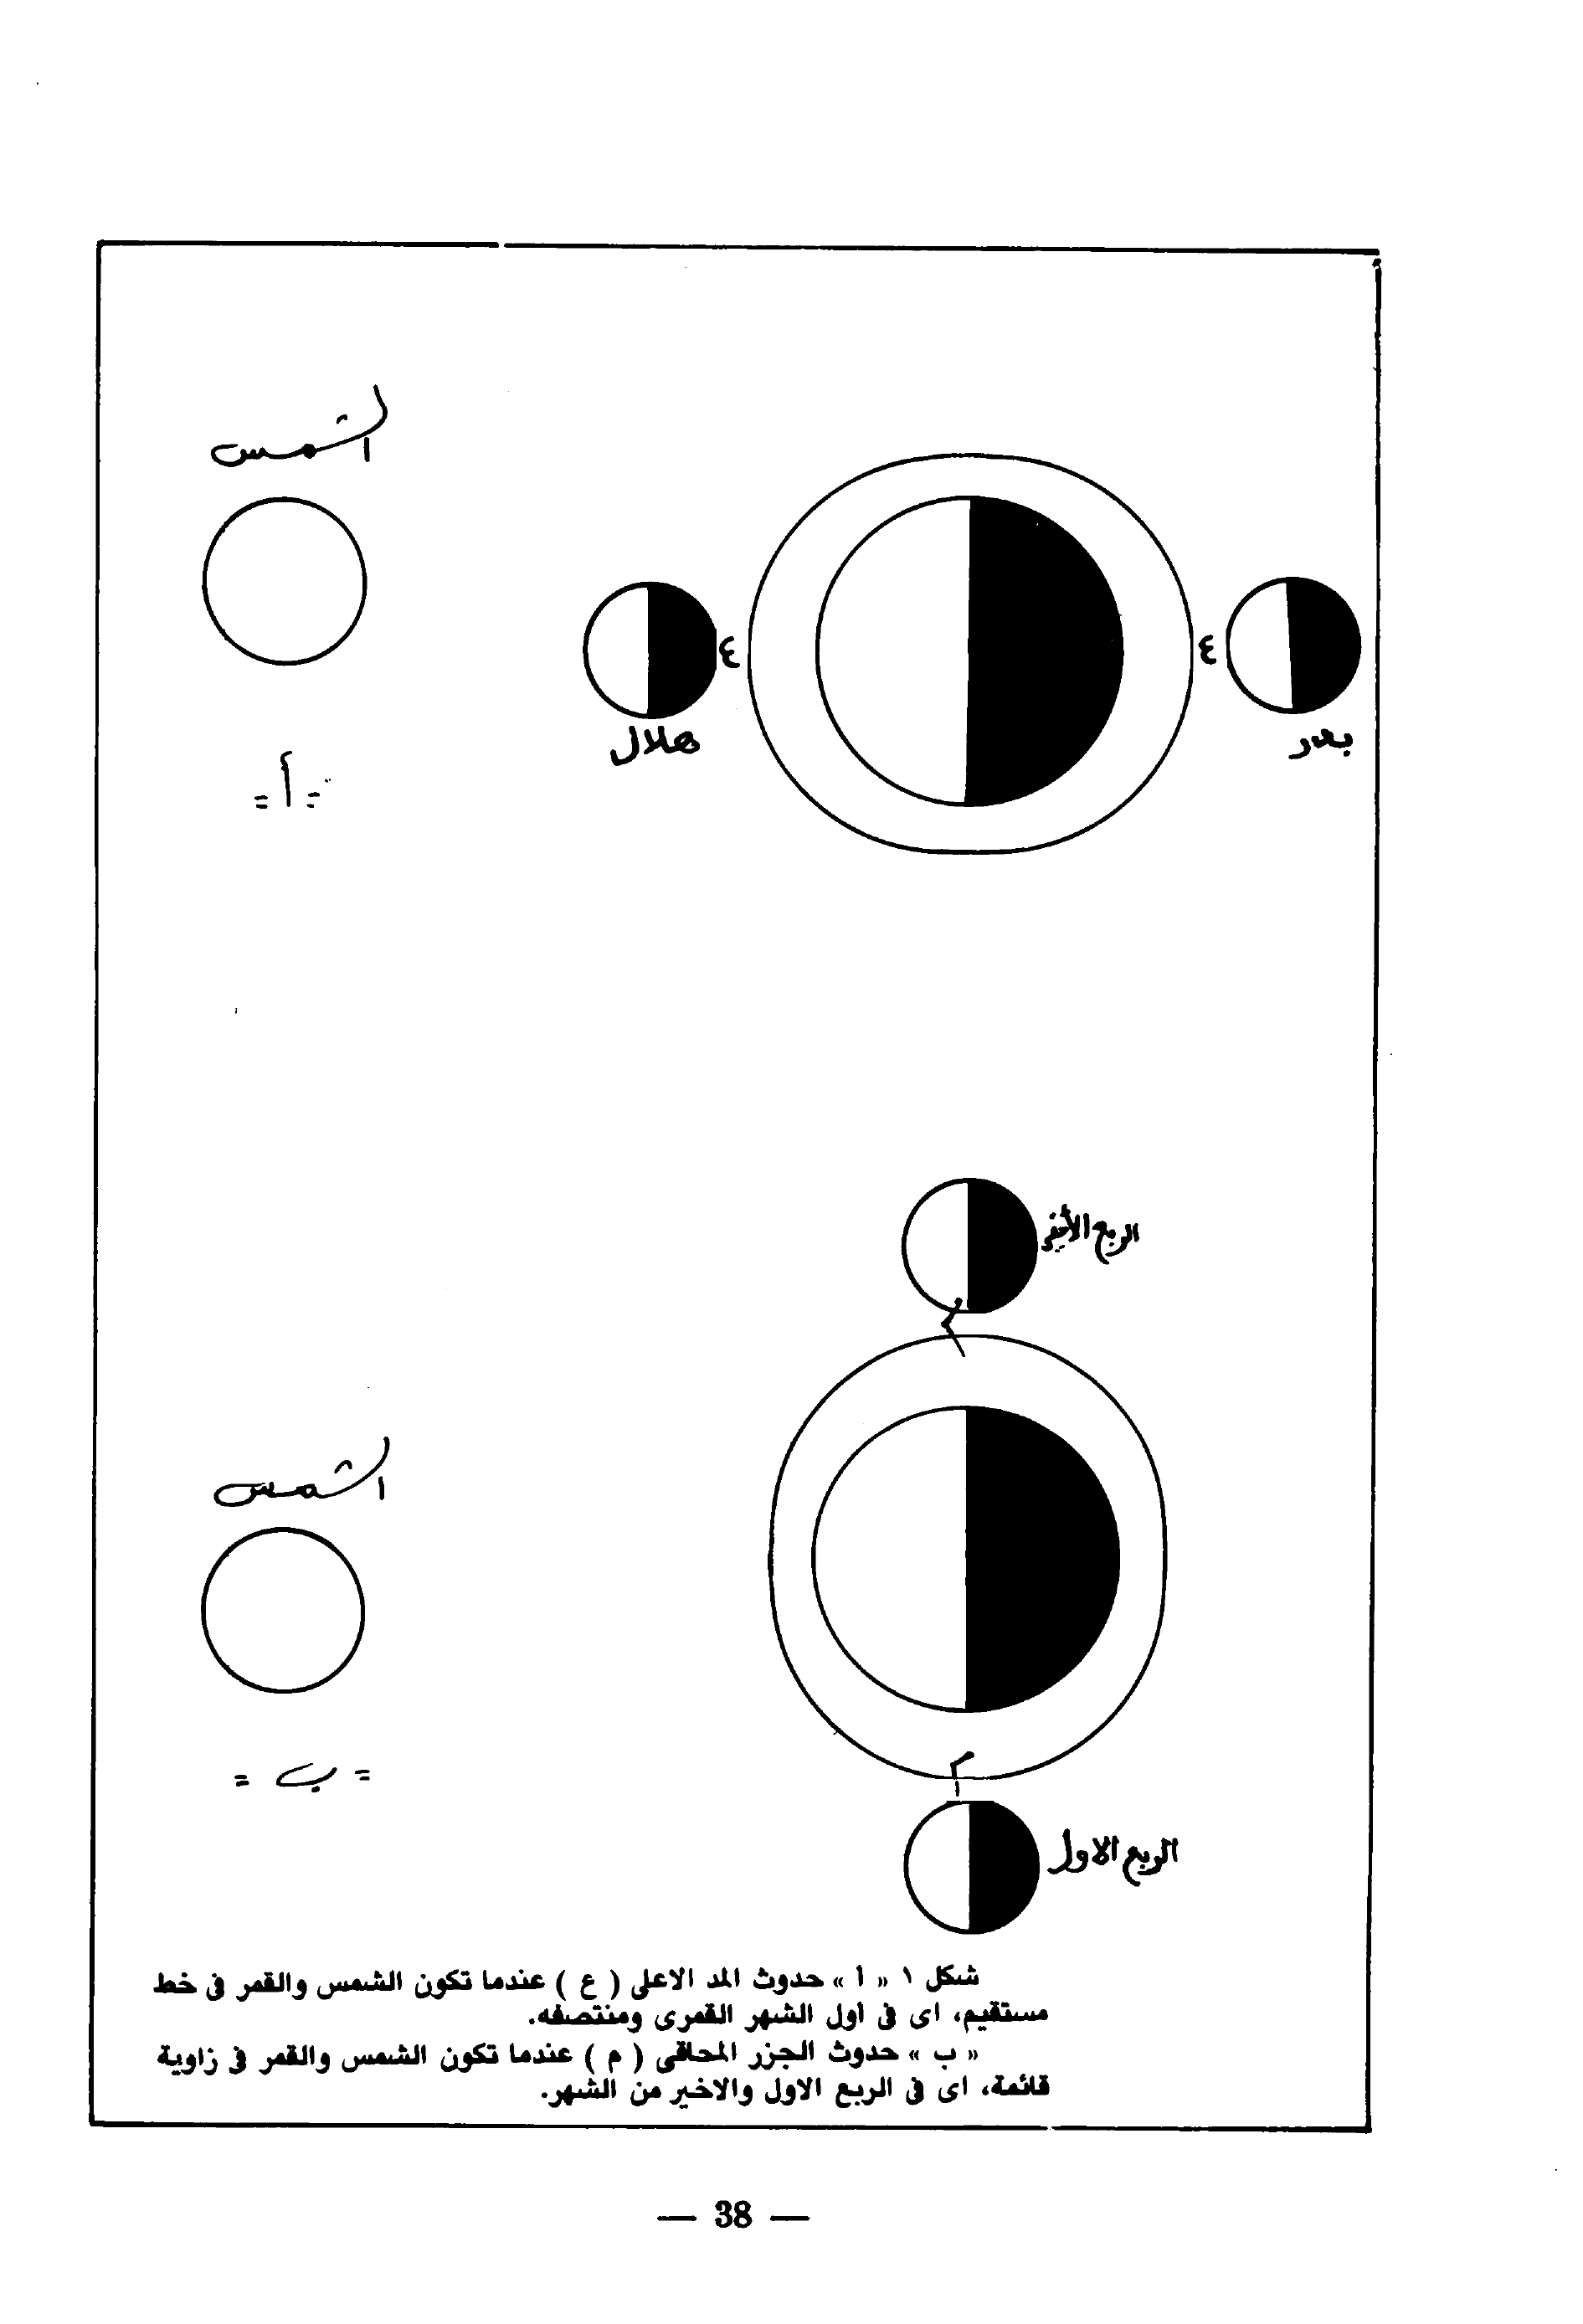 الشمس
ع
ع
هلال
بدر
= أ =
الربع الأخير
م
الشمس
م
= ب =
الربع الاول
شكل ١ « أ » حدوث المد الاعلى ( ع ) عندما تكون الشمس والقمر في خط
مستقيم، اى في اول الشهر القمرى ومنتصفه.
« ب » حدوث الجزر المحاقى ( م ) عندما تكون الشمس والقمر في زاوية
قائمة، اى في الربع الاول والاخير من الشهر.
— 38 —